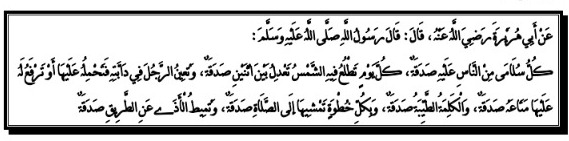 عَنْ أَبِي هُرَيْرَةَ رَضِيَ اللَّهُ عَنْهُ، قَالَ: قَالَ رَسُولُ اللَّهِ صَلَّى اللَّهُ عَلَيْهِ وَسَلَّمَ:
كُلُّ سُلَامَى مِنَ النَّاسِ عَلَيْهِ صَدَقَةٌ، كُلَّ يَوْمٍ تَطْلُعُ فِيهِ الشَّمْسُ تَعْدِلُ بَيْنَ اثْنَيْنِ صَدَقَةٌ، وَتُعِينُ الرَّجُلَ فِي دَابَّتِهِ فَتَحْمِلُهُ عَلَيْهَا أَوْ تَرْفَعُ لَهُ
عَلَيْهَا مَتَاعَهُ صَدَقَةٌ، وَالْكَلِمَةُ الطَّيِّبَةُ صَدَقَةٌ، وَبِكُلِّ خُطْوَةٍ تَمْشِيهَا إِلَى الصَّلَاةِ صَدَقَةٌ، وَتُمِيطُ الْأَذَى عَنِ الطَّرِيقِ صَدَقَةٌ